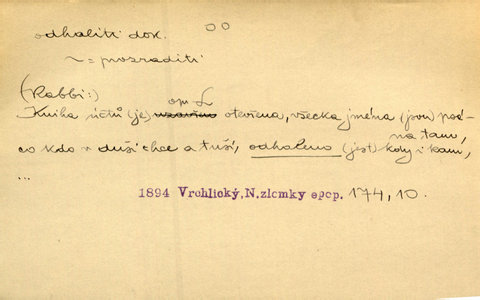 odhaliti dok.
~ = prozraditi
(Rabbi:)
Kniha účtů (je) otevřena, všecka jména (jsou) poé-
na tam,
co kdo v duši chce a tuší, odhaleno (jest) kdy i kam,
...
1894 Vrchlický, N. zlomky epop. 174, 10.